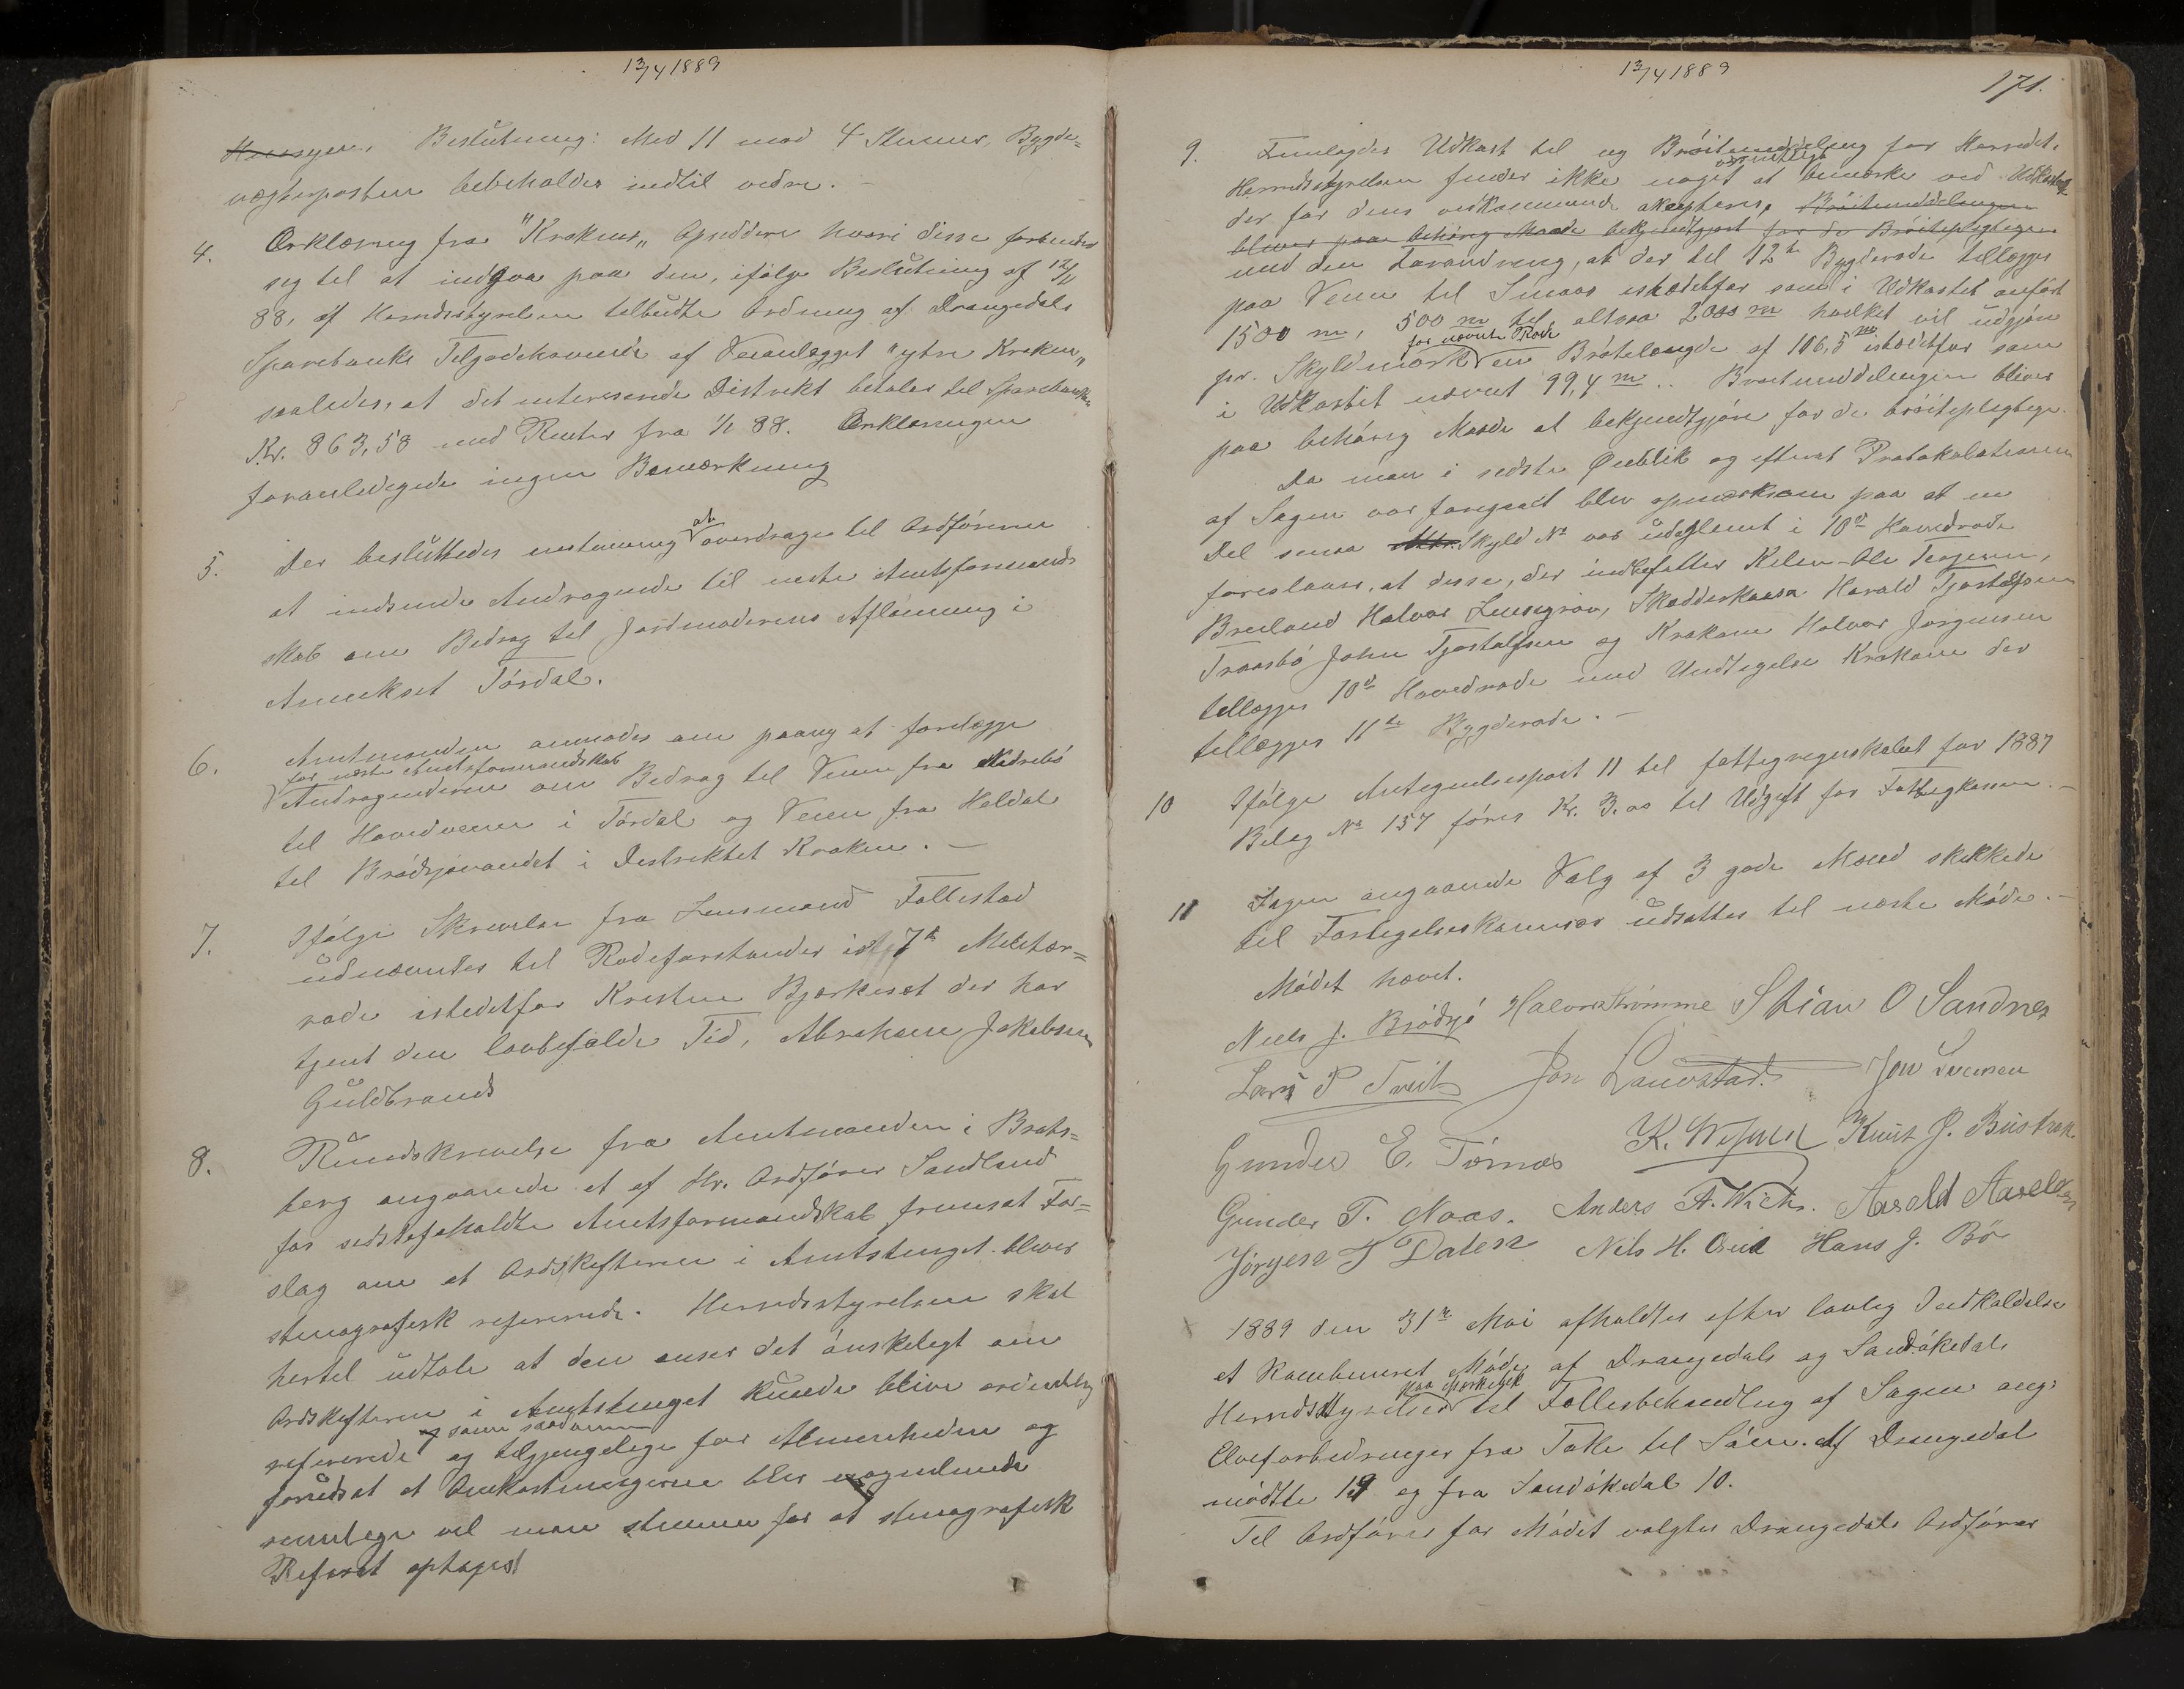 13/4 1889
Beslutning: Med 11 mod 4 Stemmer, Bygde=
vægterposten bebeholdes indtil vedre. -
4. Erklæring fra "Krokens" Opsiddere hvori disse forbinder
sig til at indgaa paa den, ifølge Beslutning af 12/11
88, af Herredsstyrelsen tilbudte Ordning af Drangedals
Sparebanks Tilgodehavende af Veianlægget "ytre Kroken"
saaledes, at det interesserede Distrikt betaler til Sparebanken
Kr. 863,58 med Renter fra 1/1 88. Erklæringen
foranledigede ingen Bemærkning
5. Der besluttedes enstemmig at overdrage til Ordføreren
at indsende Andragende til neste Amtsformand-
skab om Bidrag til Jordmoderens Aflønning i
Annekset Tørdal.
6. Amtmanden anmodes om paany at forelægge
for næste Amtsformandskab
Andragenderne om Bidrag til Veien fra Nedrebø
til Hovedveien i Tørdal og Veien fra Haldal
til Brødsjøvandet i Distriktet Kroken. -
7. Ifølge Skrivelse fra Lensmand Tallestad
udnævntes til Rodeforstander i 7de Militær=
rode istedetfor Kristen Bjørkeset der har
tjent den lovbefalde Tid, Abraham Jakobsen
Guldbrands
8. Rundskrivelse fra Amtmanden i Brats=
berg angaaende et af Hr. Ordfører Sandland
for sidstafholdte Amtsformandskab fremsat For=
slag om at Ordskifterne i Amtstinget bliver
stenografisk refererede. Herredsstyrelsen skal
hertil udtale at den anser det ønskeligt om
Ordskifterne i Amtstinget kunde blive ordentlig
refererede og som saadanne
og tilgjengelige for Almenheden og
forudsat at Omkostningerne blir nogenlunde
rimelige vil man stemme for at stenografisk
Referat optages
13/4 1889
171.
9. Fremlagdes Udkast til ny Brøiteinddeling for Herredet.
væsentligt
Herredsstyrelsen finder ikke noget at bemærke ved Udkastet
der for dens vedkommende akcepteres, Brøiteinddelingen
bliver paa behørig Maade bekjendtgjort for de Brøitepligtige
med den Forandring, at der til 12te Bygderode tillægges
paa Veien til Smaas istedetfor som i Udkastet anført
1500 m, 500 m til, altsaa 2000 m hvilket vil udgjøre
for nævnte Rode
pr. Skyldmark en Brøtelængde af 106,5 m istedetfor som
i Udkastet nævnt 99,4 m. Brøiteinddelingen bliver
paa behørig Maade at bekjendtgjøre for de brøitepligtige.
Da man i sidste Øieblik og efterat Protokolationen
af Sagen var foregaaet blev opmerksom paa at en
Del smaa Skyld No var udeglemt i 10de Hovedrode
foreslaaes, at disse, der indbefatter Kilen-Ole Teojesen,
Breiland Halvor Lensgrav, Skodderkaasa Harald Tjostolfsen
Traasbø John Tjostolfsen og Krokane Halvor Jørgensen
tillægges 10de Hovedrode med Undtagelse Krokane der
tillægges 11te Bygderode. -
10 Ifølge Antegnelsespost 11 til fattigregnskabet for 1887
Bilag No 157 føres Kr. 3.00 til Udgift for Fattigkassen. -
11 Sagen angaaende Valg af 3 gode Mænd skikkede
til Forligelseskommisær udsattes til næste Møde. -
Mødet hævet.
Niels J. Brødsjø Halvor Strømme Stian O Sandnes
Lars P Tveit Jon Lauvstad. Jon Svensen
Gunder E. Tørnes K. Wefald Knut J. Bustrak.
Gunder T. Naas. Anders A. Wichs. Aasold Aaselsen
Jørgen T Dalen Nils H. Eeik Hans J. Bø
1889 den 31te Mai afholdtes efter lovlig Indkaldelse
et kombineret Møde af Drangedals og Sandøkedals
paa Merkebæk
Herredsstyrelser til Fællesbehandling af Sagen ang.
Elveforbedringer fra Tokke til Søen. Af Drangedal
mødtte 19 og fra Sandøkedal 10.
Til Ordfører for Mødet valgtes Drangedals Ordfører